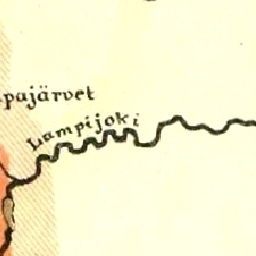 pajärvet
Lampijoki